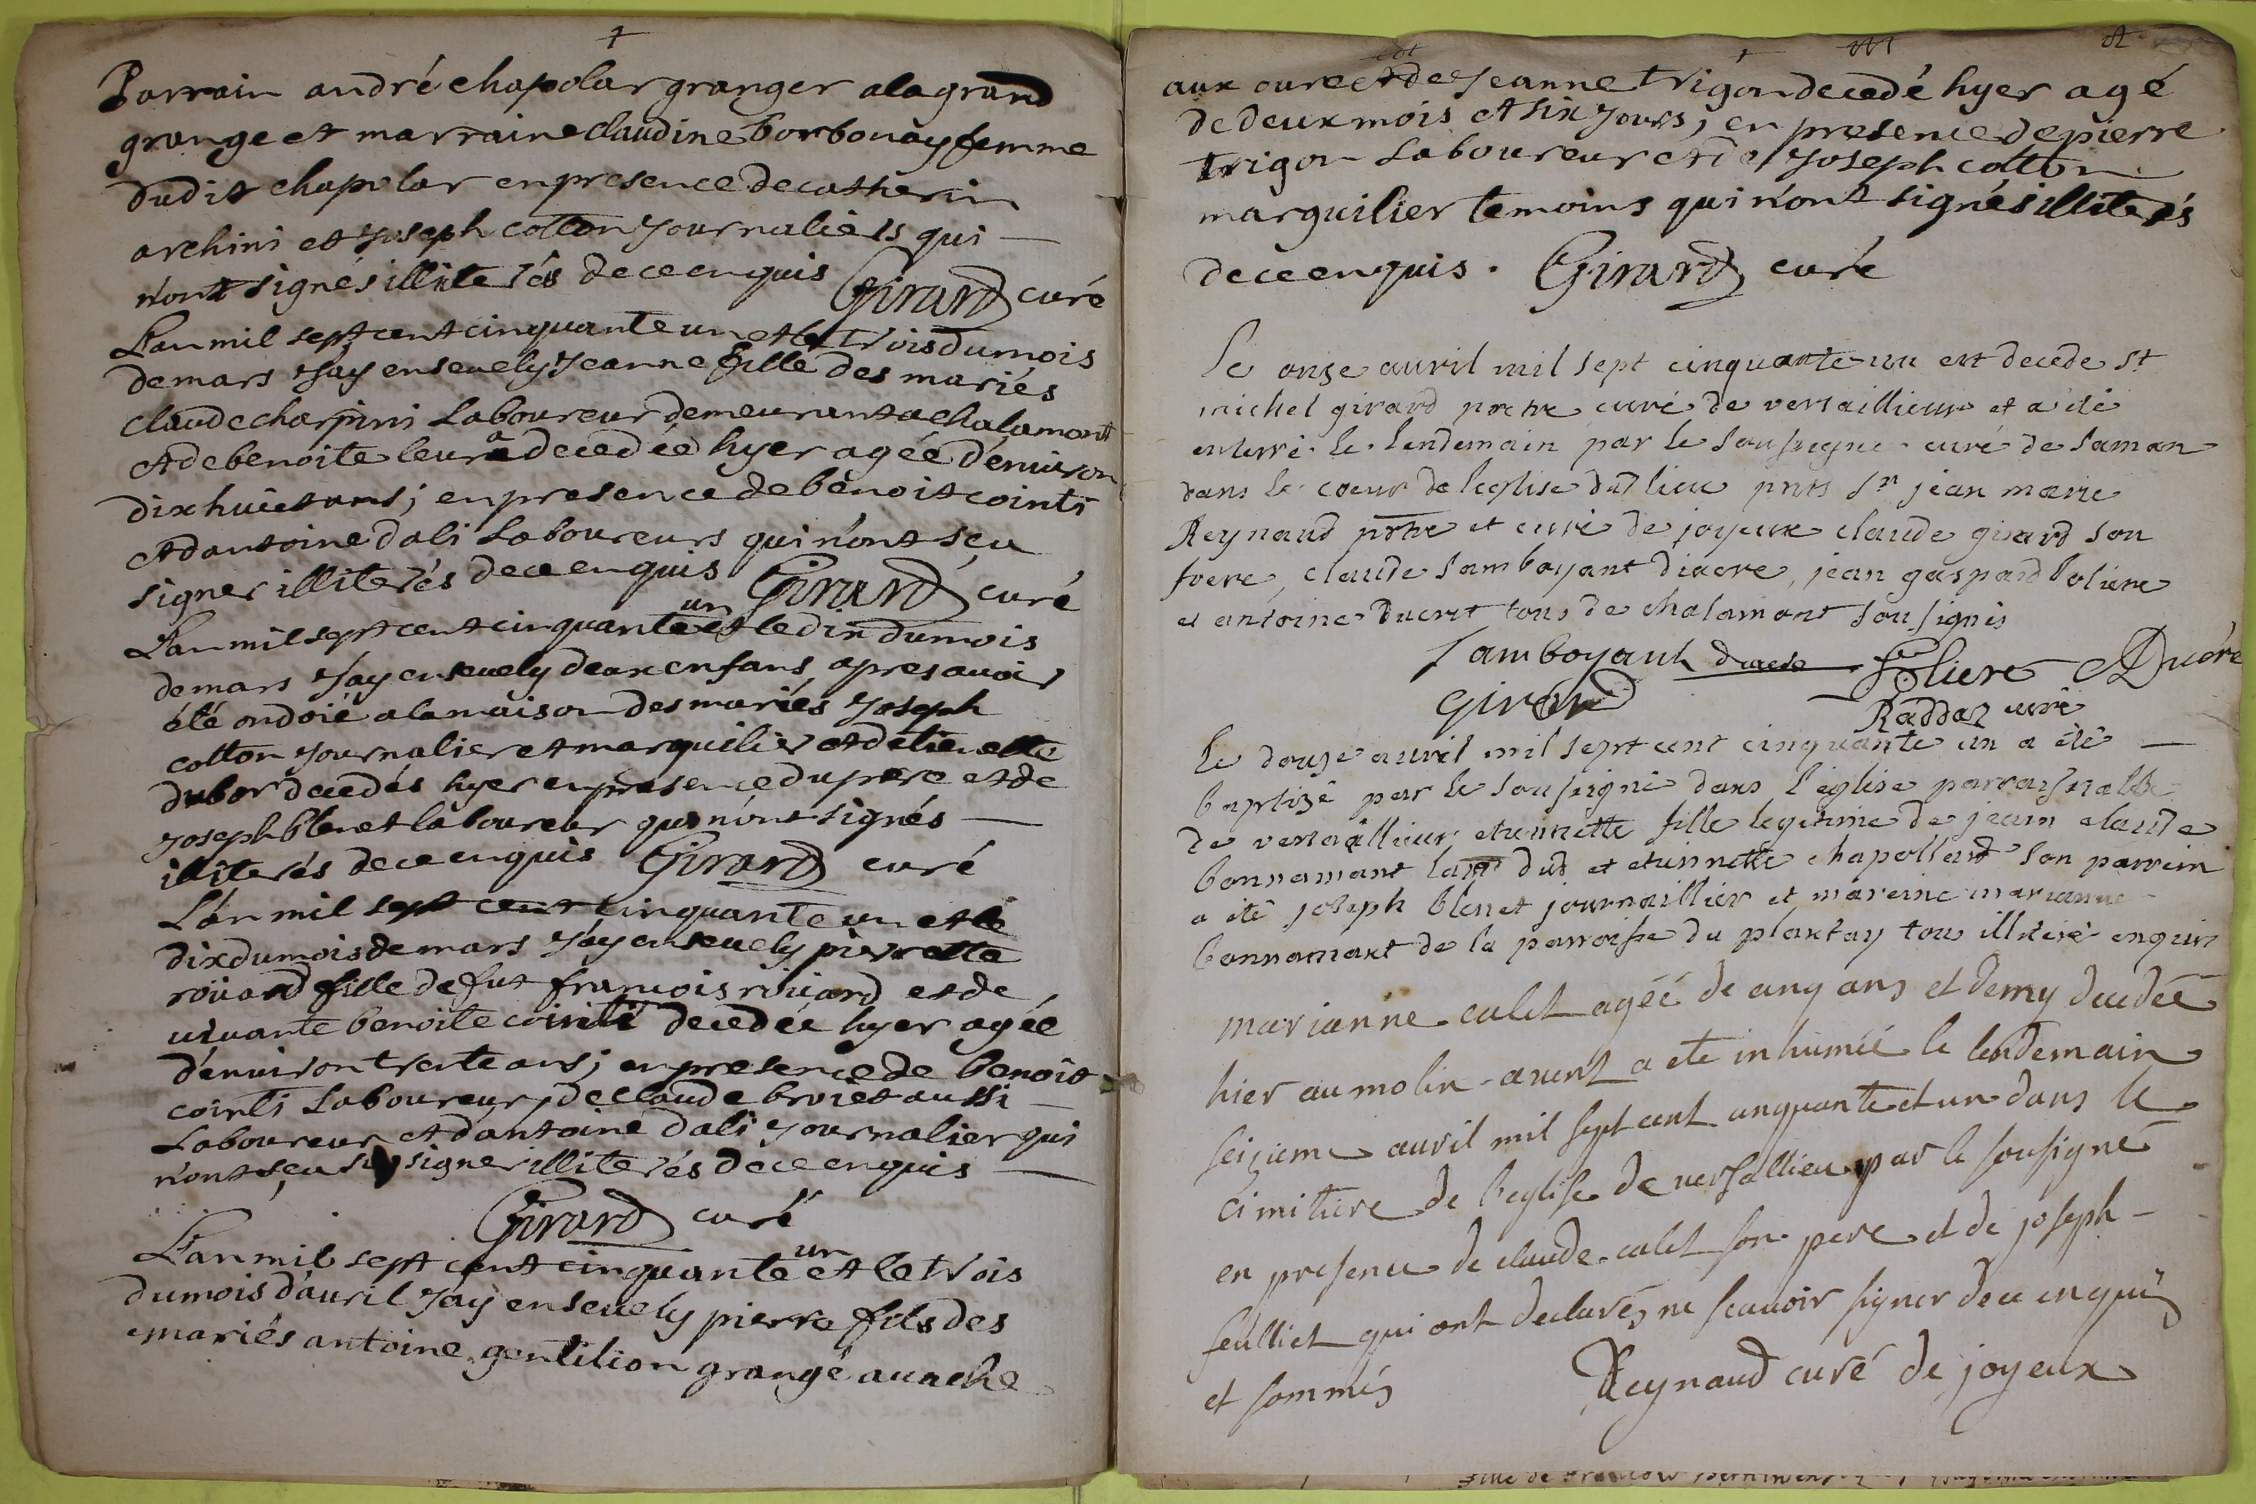 Parrain andré chapolar granger ala grand
grange et marraine claudine borbouay femme
dudit chapolar en presence de catherin
archini et Joseph cotton Journaliers qui
n'ont signés illiterés de ce enquis Girard curé
L'an mil sept cent cinquante un et le trois du mois
de mars J'ay ensevely Jeanne fille des mariés
claude charpini Laboureur demeurant a chalamont
et de benoite leur decedée hyer agée d'environ
dix huict ans; en presence de benoit cointi
et d'antoine dali Laboureurs qui n'ont sçu
signer illiterés de ce enquis Girard curé
L'an mil sept cent cinquante un et le dix du mois
de mars J'ay ensevely deux enfans apres avoir
été ondoié a la maison des mariés Joseph
cotton Journalier et marguilier et d'etiennette
dubor decedés hyer en presence du pere et de
Joseph blenet laboureur qui n'ont signés
illiterés de ce enquis Girard curé
L'an mil sept cent cinquante un et le
dix du mois de mars J'ay ensevely pierrette
roüard fille de fut francois roüard et de
vivante benoite cointi decedée hyer agée
d'environ trente ans; en presence de benoit
cointi Laboureur, de claude broiet aussi
Laboureur et d'antoine dali Journalier qui
n'ont sçu signer illiterés de ce enquis
Girard curé
L'an mil sept cent cinquante un et le trois
du mois d'auril J'ay ensevely pierre fils des
mariés antoine gentilion grangé au ache
aux cure et de Jeanne trigon decedé hyer agé
de deux mois et six Jours, en presence de pierre
trigon Laboureur et de Joseph cotton
marguilier temoins qui n'ont signés illiterés
de ce enquis. Girard curé
Le onze auvril mil sept cinquante un est decede st
michel girard pretre curé de versaillieux et a été
enterré le lendemain par le soussigne curé de saman
dans le coeur de leglise dud lieu pnts sr jean marie
Reynaud pbtre et curé de joyeux claude girard son
frere, claude samboyant diacre, jean gaspard soliere
et antoine ducret tous de chalamont soussignés
Samboyant diacre Soliere ADucré
Girard Raddaz curé
Le douze auvril mil sept cent cinquante un a été
baptizé par le soussigné dans l'église parroissialle
de versaillieux etiennette fille legitime de jean claude
bonnamant labr dud et etiennette chapolland son parrein
a été joseph blenet journaillier et mareine marianne
bonnamant de la parroisse du plantay tous illiteré enquis
marianne calet agéé de cinq ans et demy decedéé
hier au molin avent a ete inhumée le lendemain
seizieme auvril mil sept cent cinquante et un dans le
cimitiere de l'eglise de versallieu par le sousigné
en presence de claude calet son pere et de joseph
feulliet qui ont declarés ne scauoir signer de ce enquis
et sommés Reynaud curé de joyeux